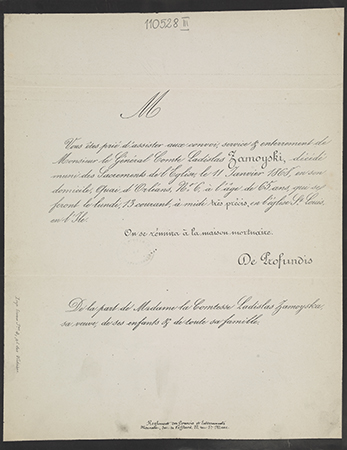 110528 III
M
Vous êtes prié d'assister aux convoi, service & enterrement de
Monsieur le Général Comte Ladislas Zamoyski, décédé
muni des Sacrements de l'Eglise, le 11 Janvier 1868, en son
domicile, Quai d'Orléans, No. 6, à l'âge de 65 ans, qui se
feront le lundi, 13 courant, à midi très précis, en l'église St. Louis,
en l'Ile.
On se réunira à la maison mortuaire.
De Profundis
De la part de Madame la Comtesse Ladislas Zamoyska,
sa veuve, de ses enfants & de toute sa famille.